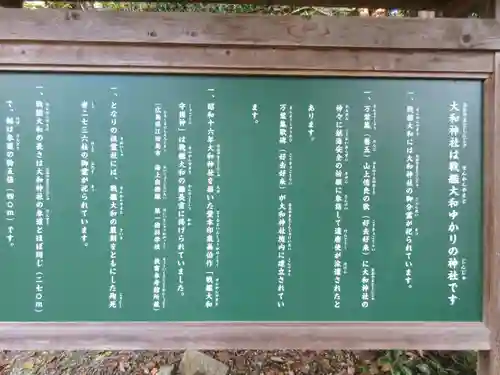 大和神社は戦艦大和ゆかりの神社です
一、戦艦大和には大和神社の御分霊が祀られています。
一、万葉集（巻五）山上憶良の歌（好去好来）に大和神社の
神々に航海安全の祈願に参詣して遣唐使が派遣されたと
あります。
万葉集歌碑（好去好来）が大和神社境内に建立されてい
ます。
一、昭和十六年大和神社を描いた堂本印象画伯作「戦艦大和
守護神」は戦艦大和の艦長室に掲げられていました。
（広島県江田島市 海上自衛隊 第一術科学校 教育参考館所蔵）
一、となりの祖霊社には、戦艦大和の展制官ともにした殉死
者二七三六柱の御霊が祀られています。
一、戦艦大和の長さは大和神社の参道とほぼ同じ（二七〇m）
で、幅は参道の約五倍（四〇m）です。